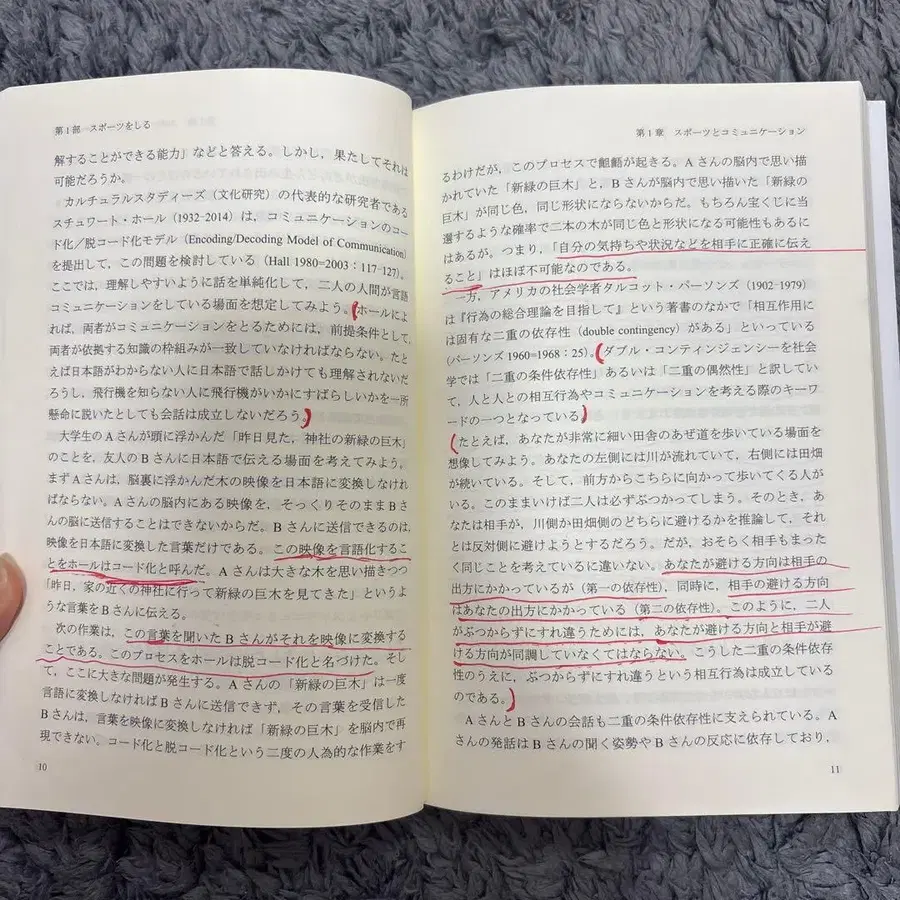 第1部 スポーツをしる
解することができる能力」などと答える。しかし，果たしてそれは
可能だろうか。
カルチュラルスタディーズ（文化研究）の代表的な研究者である
スチュワート・ホール（1932-2014）は，コミュニケーションのコー
ド化／脱コード化モデル（Encoding/Decoding Model of Communication）
を提出して，この問題を検討している（Hall 1980=2003：117-127）。
ここでは，理解しやすいように話を単純化して，二人の人間が言語
コミュニケーションをしている場面を想定してみよう。ホールによ
れば，両者がコミュニケーションをとるためには，前提条件として，
両者が依拠する知識の枠組みが一致していなければならない。たと
えば日本語がわからない人に日本語で話しかけても理解されないだ
ろうし，飛行機を知らない人に飛行機がいかにすばらしいかを一所
懸命に説いたとしても会話は成立しないだろう。
大学生のAさんが頭に浮かんだ「昨日見た，神社の新緑の巨木」
のことを，友人のBさんに日本語で伝える場面を考えてみよう。
まずAさんは，脳裏に浮かんだ木の映像を日本語に変換しなけれ
ばならない。Aさんの脳内にある映像を，そっくりそのままBさ
んの脳に送信することはできないからだ。Bさんに送信できるのは，
映像を日本語に変換した言葉だけである。この映像を言語化するこ
とをホールはコード化と呼んだ。Aさんは大きな木を思い描きつつ
「昨日，家の近くの神社に行って新緑の巨木を見てきた」というよ
うな言葉をBさんに伝える。
次の作業は，この言葉を聞いたBさんがそれを映像に変換する
ことである。このプロセスをホールは脱コード化と名づけた。そし
て，ここに大きな問題が発生する。Aさんの「新緑の巨木」は一度
言語に変換しなければBさんに送信できず，その言葉を受信した
Bさんは，言葉を映像に変換しなければ「新緑の巨木」を脳内で再
現できない。コード化と脱コード化という二度の人為的な作業をす
10
第1章 スポーツとコミュニケーション
るわけだが，このプロセスで齟齬が起きる。Aさんの脳内で思い描
かれていた「新緑の巨木」と，Bさんが脳内で思い描いた「新緑の
巨木」が同じ色，同じ形状にならないからだ。もちろん宝くじに当
選するような確率で二本の木が同じ色と形状になる可能性もあるに
はあるが。つまり，「自分の気持ちや状況などを相手に正確に伝え
ること」はほぼ不可能なのである。
一方，アメリカの社会学者タルコット・パーソンズ（1902-1979）
は『行為の総合理論を目指して』という著書のなかで「相互作用に
は固有な二重の依存性（double contingency）がある」といっている
（パーソンズ 1960=1968：25）。ダブル・コンティンジェンシーを社会
学では「二重の条件依存性」あるいは「二重の偶然性」と訳してい
て，人と人との相互行為やコミュニケーションを考える際のキーワ
ードの一つとなっている。
たとえば，あなたが非常に細い田舎のあぜ道を歩いている場面を
想像してみよう。あなたの左側には川が流れていて，右側には田畑
が続いている。そして，前方からこちらに向かって歩いてくる人が
いる。このままいけば二人は必ずぶつかってしまう。そのとき，あ
なたは相手が，川側か田畑側のどちらに避けるかを推論して，それ
とは反対側に避けようとするだろう。だが，おそらく相手もまった
く同じことを考えているに違いない。あなたが避ける方向は相手の
出方にかかっているが（第一の依存性），同時に，相手の避ける方向
はあなたの出方にかかっている（第二の依存性）。このように，二人
がぶつからずにすれ違うためには，あなたが避ける方向と相手が避
ける方向が同調していなくてはならない。こうした二重の条件依存
性のうえに，ぶつからずにすれ違うという相互行為は成立している
のである。
AさんとBさんの会話も二重の条件依存性に支えられている。A
さんの発話はBさんの聞く姿勢やBさんの反応に依存しており，
11